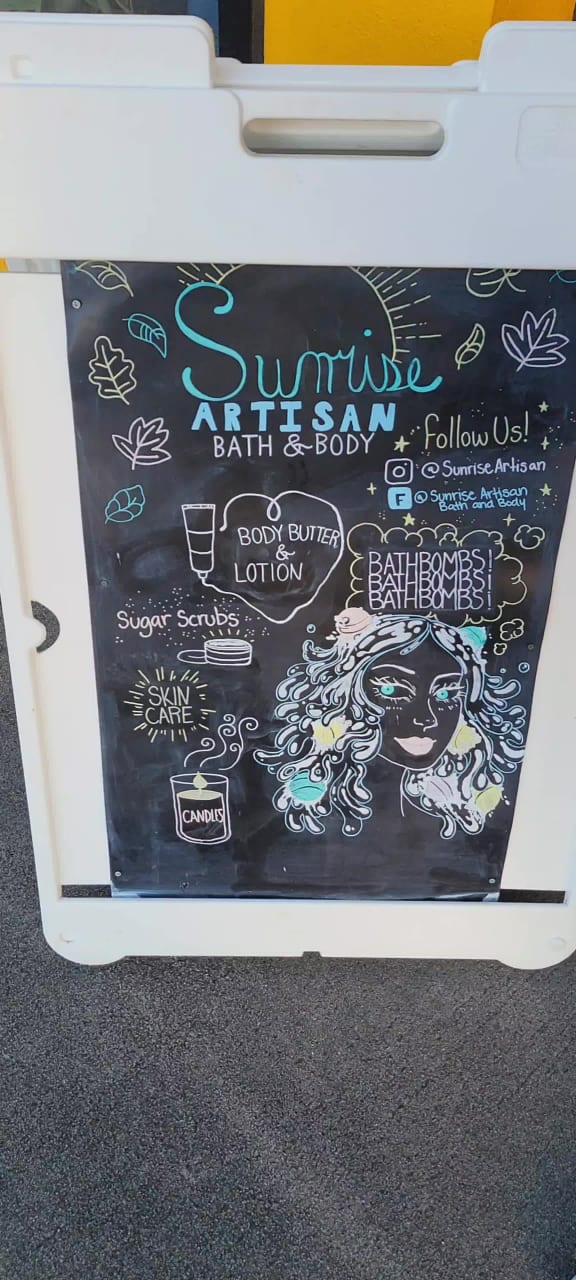 Sunrise
ARTISAN
BATH & BODY
Follow Us!
@SunriseArtisan
F @Sunrise Artisan
Bath and Body
BODY BUTTER
&
LOTION
BATHBOMBS!
BATHBOMBS!
BATHBOMBS!
Sugar Scrubs
SKIN
CARE
CANDLES